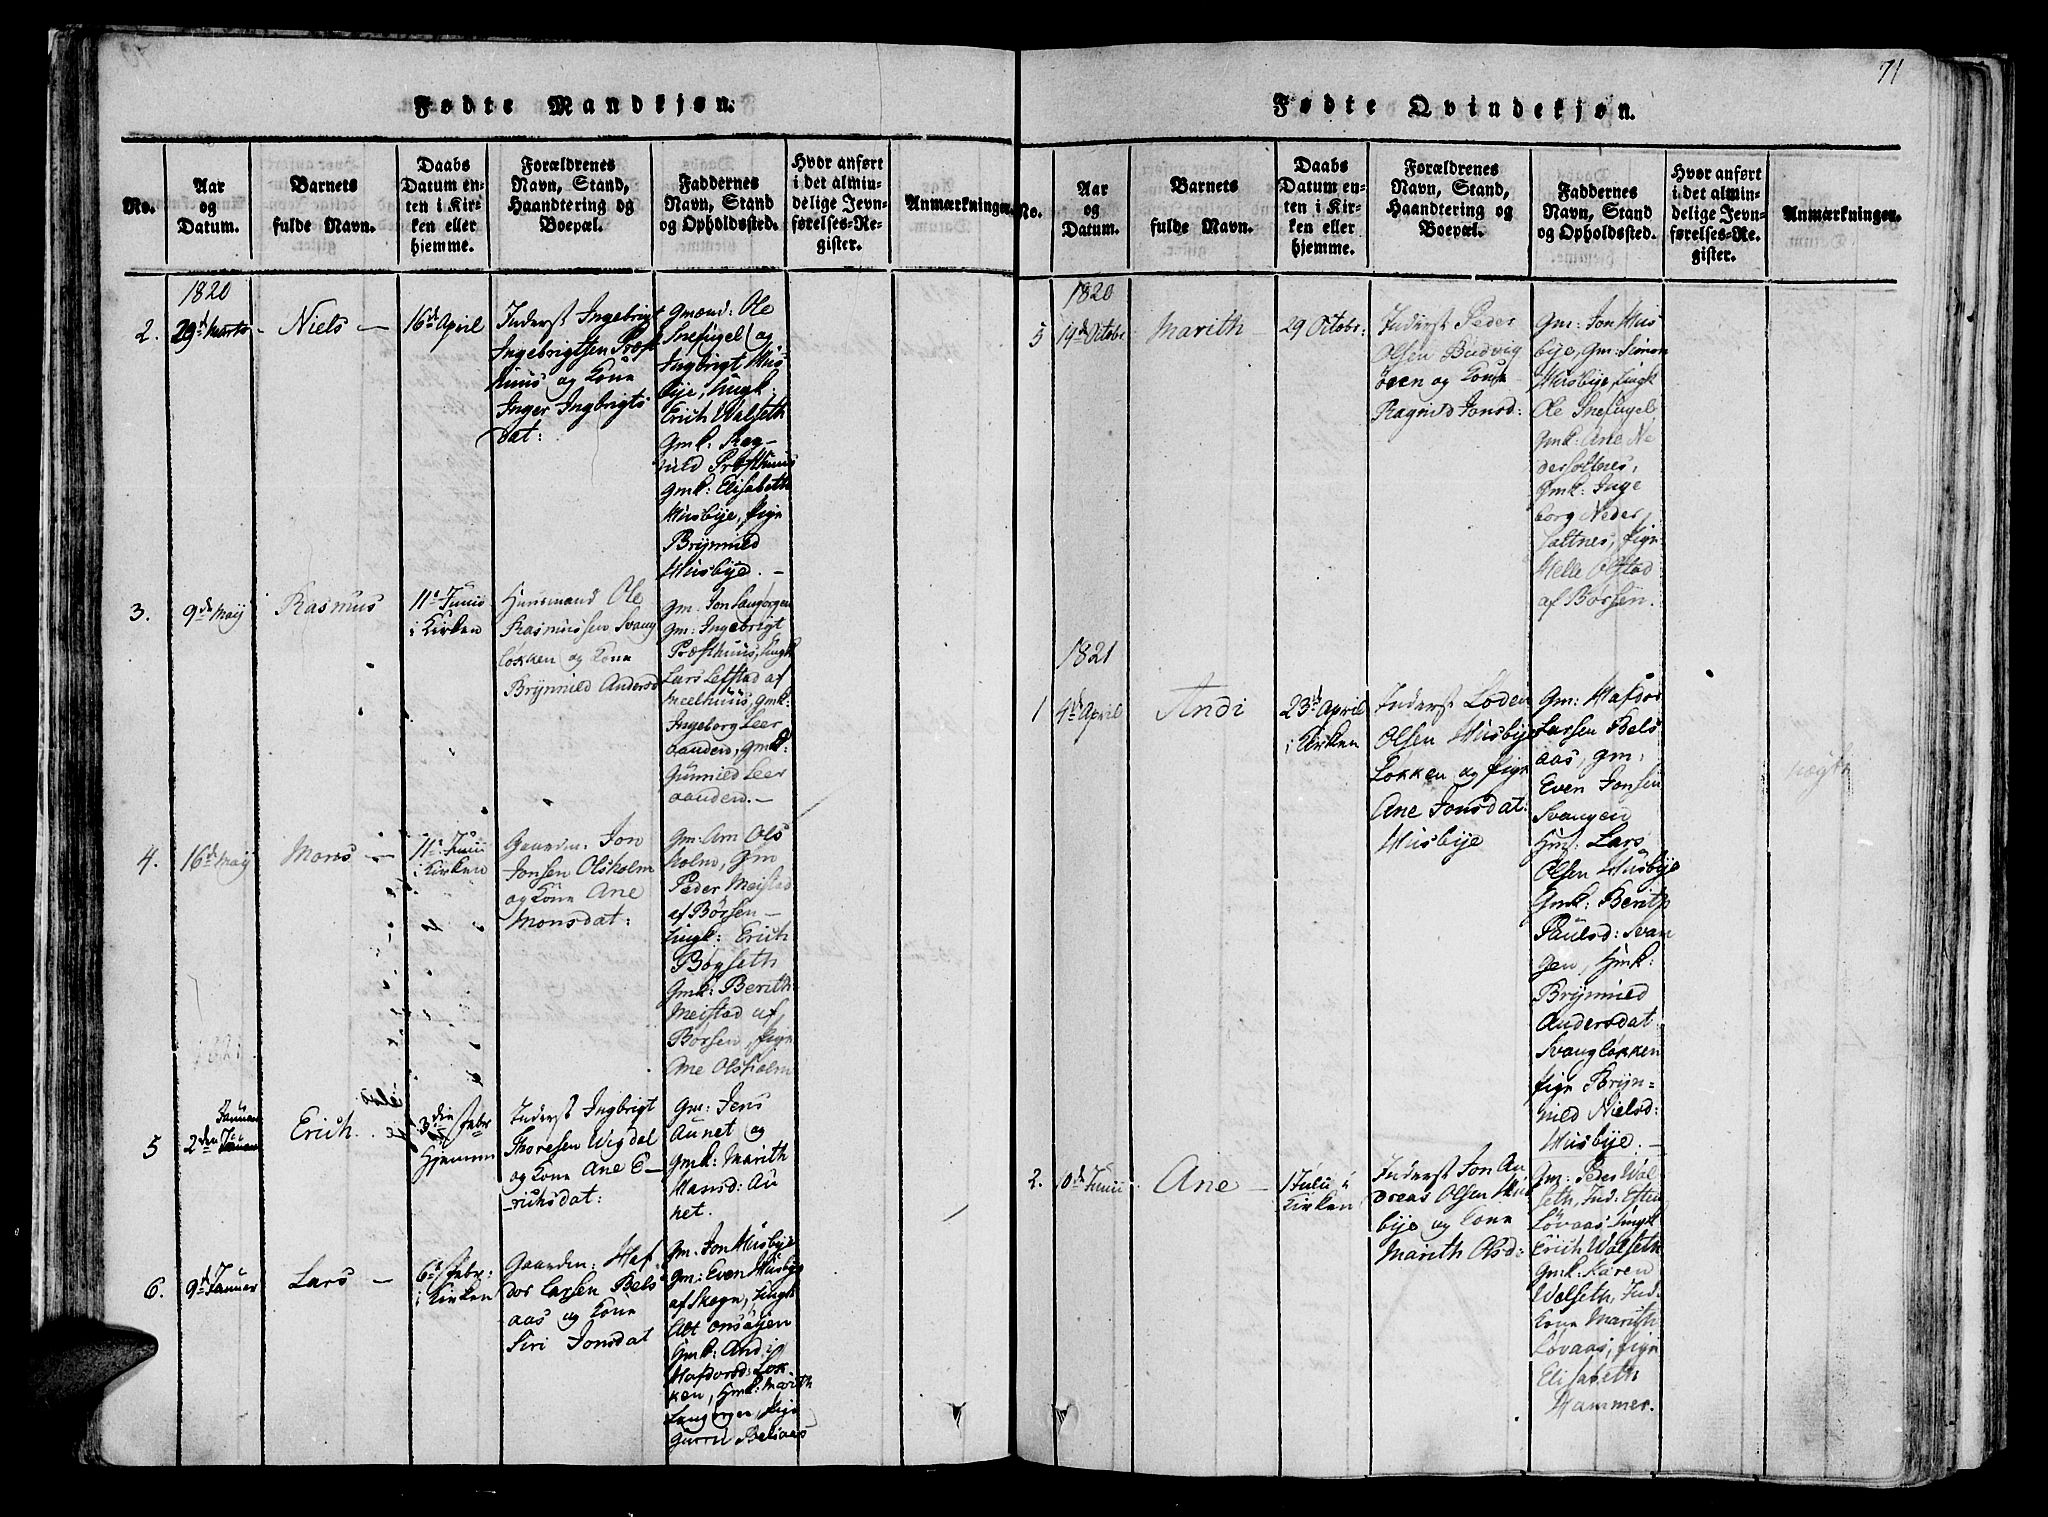 71
Fødte Mandkjøn.
No.
Aar
og
Datum.
Barnets
fulde Navn.
Daabs
Datum en-
ten i Kir-
ken eller
hjemme.
Forældrenes
Navn, Stand,
Haandtering og
Boepæl.
Faddernes
Navn, Stand
og Opholdssted.
Hvor anført
i det almin-
delige Jevn-
førelses-Re-
gister.
Anmærkninger.
1820
2.
29de Marts
Niels
16de April
Inderst Ingebrigt
Ingebrigtsen Præst
huus og Kone
Inger Ingbrigts
dat:
Gmænd: Ole
Snefugel og
Ingbrigt Hus
bye, Ungk
Erich Walseth
Gmk: Rag-
nild Præsthuus
Gmk: Elisabeth
Husbye, Pige
Brynnild
Husbye.
3.
9de Maij
Rasmus
11te Junii
i Kirken
Huusmand Ole
Rasmussen Svang
løkken og Kone
Brynnild Andersd
Gm: Jon Langørgen
Gm: Ingebrigt
Præsthuus, Ungk
Lars Lefstad af
Meelhuus, Gmk:
Ingeborg Leer
aanden, Gmk:
Gunnild Leer
aanden.
4.
16de Maij
Mons
11te Junii
i Kirken
Gaardm: Jon
Jonsen Olsholm
og Kone Ane
Monsdat:
Gm: Arn Ols
holm, Gm
Peder Meistad
af Børsen
Ungk: Erich
Bøgseth
Gmk: Berith
Meistad af
Børsen, Pige
Ane Olsholm
1821
5
2den Januar
Erich
3die Febr
Hjemme
Inderst Ingbrigt
Thoresen Wigdal
og Kone Ane E-
richsdat:
Gm: Jens
Aunet og
Gmk: Marith
Hansd: Au
net.
6.
9de Januar
Lars
6te Febr:
i Kirken
Gaardm: Haf
dor Larsen Bels
aas og Kone
Siri Jonsdat
Gm. Jon Husbye
Gm: Even Husbye
af Skogn, Ungk
Alt Onsøyen
Gmk: And:
Hafdorsd: Løk
ken, Hmk: Marith
Langørgen, Pige
Gurru Belsaas
Fødte Qvindekjøn.
No.
Aar
og
Datum.
Barnets
fulde Navn.
Daabs
Datum en-
ten i Kir-
ken eller
hjemme.
Forældrenes
Navn, Stand,
Haandtering og
Boepæl.
Faddernes
Navn, Stand
og Opholdssted.
Hvor anført
i det almin-
delige Jevn-
førelses-Re-
gister.
Anmærkninger.
1820
5
19de Octobr
Marith
29 Octobr:
Inderst Peder
Olsen Budvig
og Kone
Ragnild Jonsd:
Gm: Jon Hus
bye, Gm: Simon
Husbye, Ungk
Ole Snefugel,
Gmk: Ane Ne
dersoltnes,
Gmk: Inge
borg Neder
soltnes, Pige
Helle Olstad
af Børsen.
1821
1
4de April
Andi
23de April
i Kirken
Inderst Loden
Olsen Husbye
Løkken og Pige
Ane Jonsdat:
Husbye
Gm: Hafdor
Larsen Bels
aas, Gm:
Even Jonsen
Svangen
Hm: Lars
Olsen Husbye
Gmk: Berith
Paulsd: Svan
gen, Hmk:
Brynnild
Andersdat:
Svangløkken
Pige Bryn-
nild Nielsd:
Husbye.
uægte
2.
Junii
Ane
1 Julii i
Kirken
Inderst Jon An
dreas Olsen Hus
bye og Kone
Marith Olsd:
Gm: Peder Wol
seth, Ind: Esten
Løvaas Ungk
Erich Wolseth
Gmk: Karen
Wolseth, Ind.
Kone Marith
Løvaas, Pige
Elisabeth
Hammer.